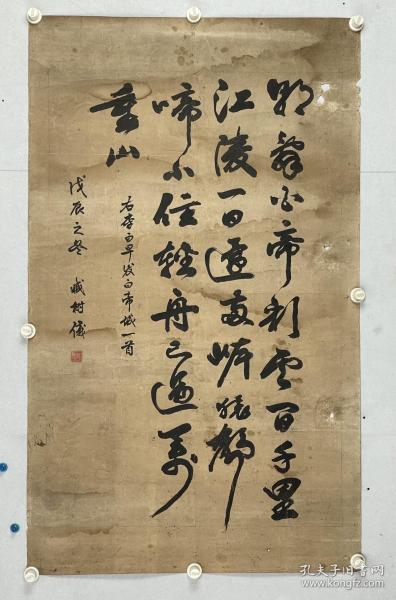 朝辭白帝彩雲間千里
江陵一日還兩岸猿聲
啼不住輕舟已過萬
重山
右李白早发白帝城一首
戊辰之冬 樹儀
孔夫子旧书网
www.kongfz.com